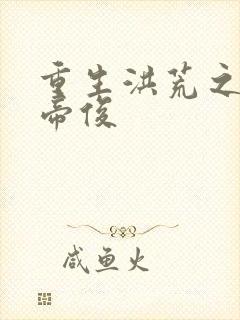 重生洪荒之
帝俊
咸鱼火